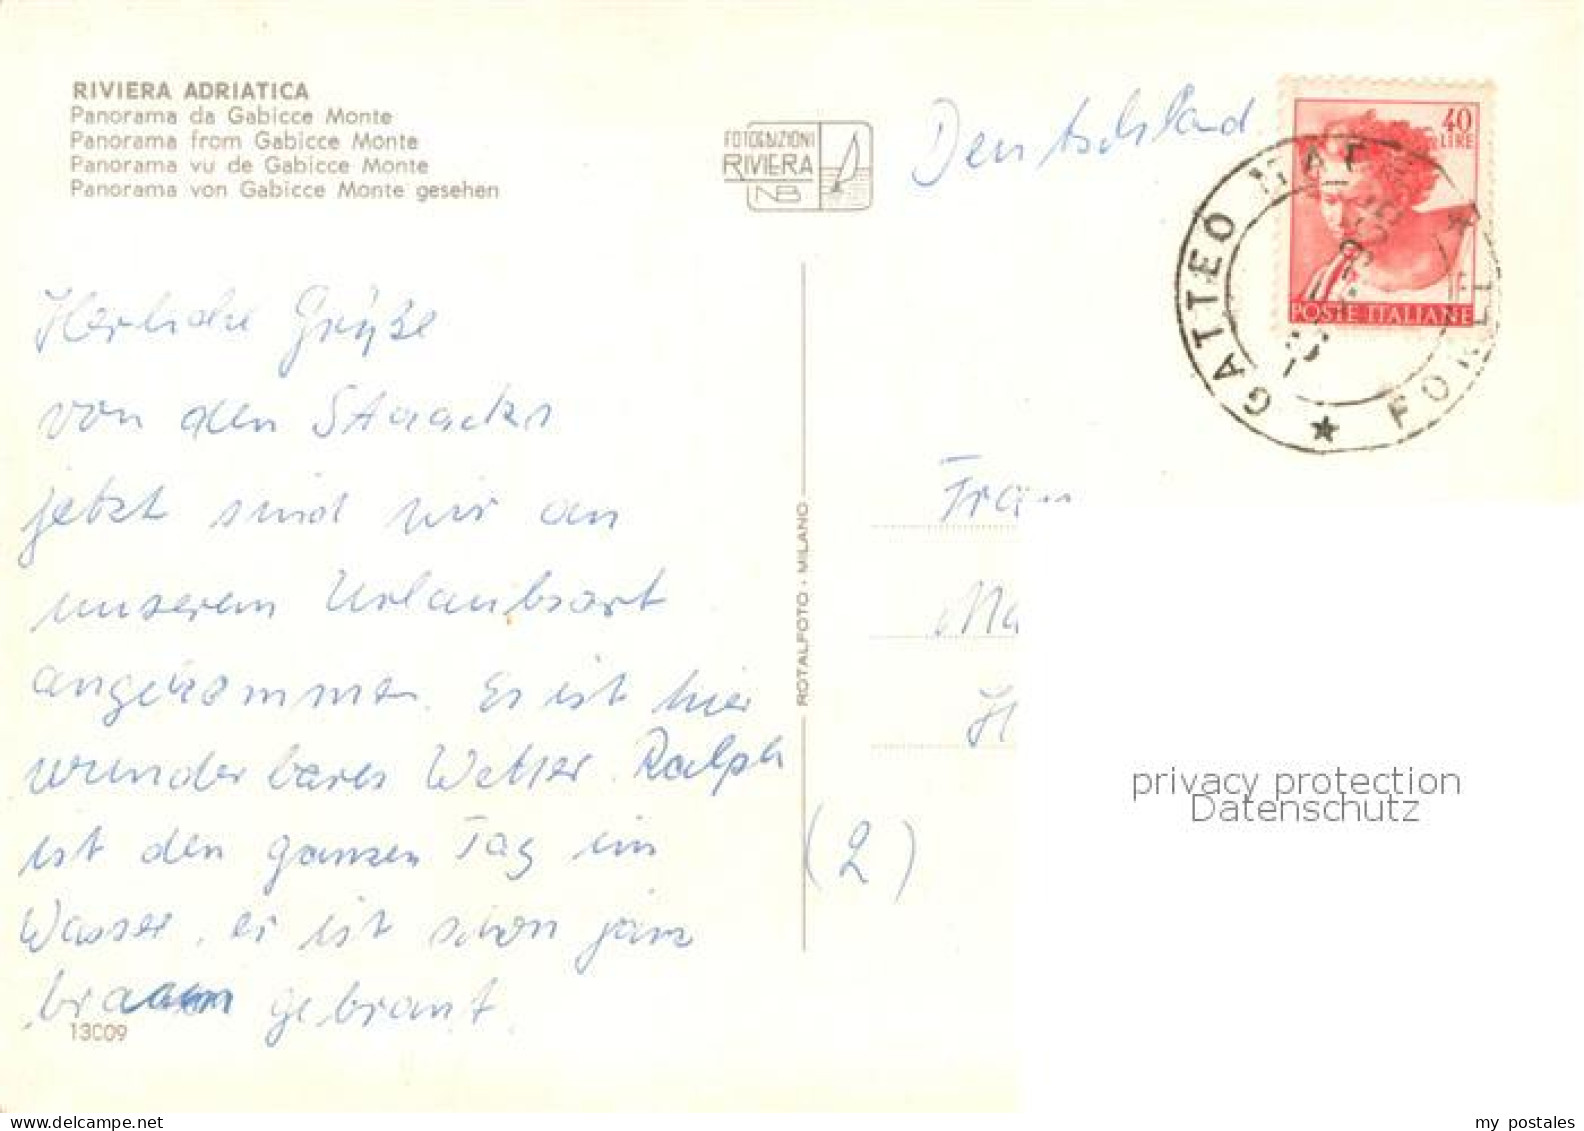 RIVIERA ADRIATICA
Panorama da Gabicce Monte
Panorama from Gabicce Monte
Panorama vu de Gabicce Monte
Panorama von Gabicce Monte gesehen
FOTOEDIZIONI
RIVIERA
NB
Deutschland
40
LIRE
POSTE ITALIANE
GATTEO MAR
FORLI
Herliche Grüße
von den Staacks
jetzt sind wir an
unserem Urlaubsort
angekommen. Es ist hier
wunderbares Wetter. Ralph
ist den ganzen Tag im
Wasser, er ist schon ganz
braun gebrant.
13009
ROTALFOTO - MILANO
(2)
Frau
Ma
H
privacy protection
Datenschutz
my postales